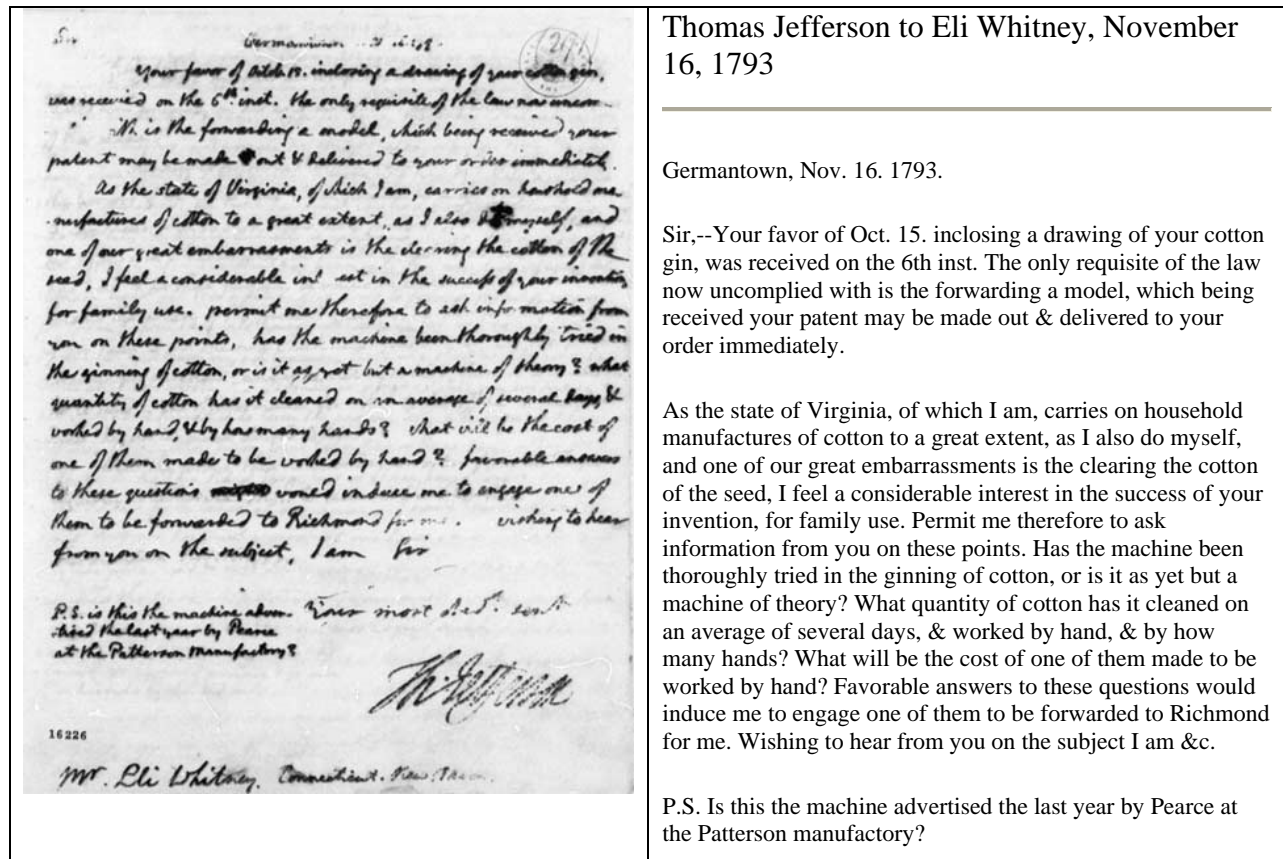 Sir
Germantown
Your favor of Octob. 15. inclosing a drawing of your cotton gin,
was received on the 6th inst. the only requisite of the law now uncom
is the forwarding a model, which being received your
patent may be made out & delivered to your order immediately.
As the state of Virginia, of which I am, carries on houshold ma
nufactures of cotton to a great extent, as I also do myself, and
one of our great embarrasments is the clearing the cotton of the
seed, I feel a considerable in est in the success of your invention
for family use. permit me therefore to ask information from
you on these points, has the machine been thoroughly tried in
the ginning of cotton, or is it as yet but a machine of theory? what
quantity of cotton has it cleaned on an average of several days, &
worked by hand, & by how many hands? what will be the cost of
one of them made to be worked by hand? favorable answers
to these questions would induce me to engage one of
them to be forwarded to Richmond for me. wishing to hear
from you on the subject, I am Sir
P.S. is this the machine adver-
tised the last year by Pearce
at the Patterson manufactory?
Your most obedt. servt
Th: Jefferson
16226
Mr. Eli Whitney. Connecticut. New Haven.
Thomas Jefferson to Eli Whitney, November
16, 1793
Germantown, Nov. 16. 1793.
Sir,--Your favor of Oct. 15. inclosing a drawing of your cotton
gin, was received on the 6th inst. The only requisite of the law
now uncomplied with is the forwarding a model, which being
received your patent may be made out & delivered to your
order immediately.
As the state of Virginia, of which I am, carries on household
manufactures of cotton to a great extent, as I also do myself,
and one of our great embarrassments is the clearing the cotton
of the seed, I feel a considerable interest in the success of your
invention, for family use. Permit me therefore to ask
information from you on these points. Has the machine been
thoroughly tried in the ginning of cotton, or is it as yet but a
machine of theory? What quantity of cotton has it cleaned on
an average of several days, & worked by hand, & by how
many hands? What will be the cost of one of them made to be
worked by hand? Favorable answers to these questions would
induce me to engage one of them to be forwarded to Richmond
for me. Wishing to hear from you on the subject I am &c.
P.S. Is this the machine advertised the last year by Pearce at
the Patterson manufactory?